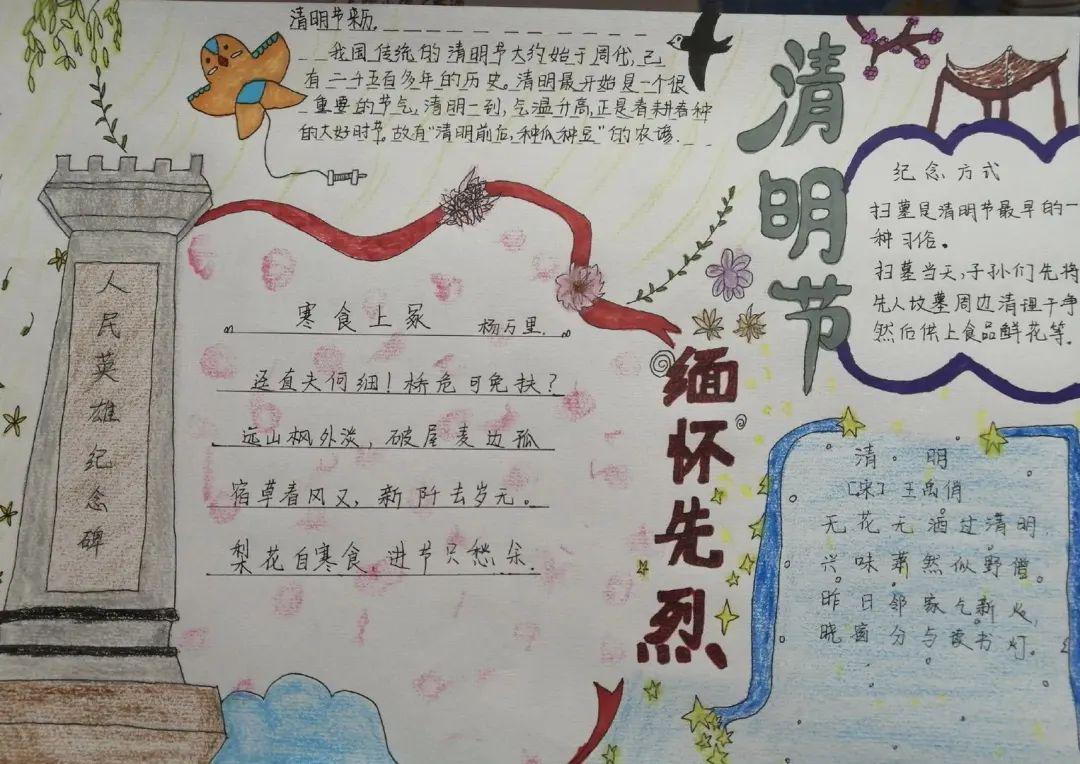 清明节来历
我国传统的清明节大约始于周代,已
有二千五百多年的历史。清明最开始是一个很
重要的节气,清明一到,气温升高,正是春耕春种
的大好时节,故有“清明前后,种瓜种豆”的农谚.
清明节
纪念方式
扫墓是清明节最早的一
种习俗。
扫墓当天,子孙们先将
先人坟墓周边清理干净
然后供上食品鲜花等.
人民英雄纪念碑
寒食上冢 杨万里.
还直夫何细!桥危可免扶?
远山枫外淡,破屋麦边孤
宿草春风又,新阡去岁无。
梨花自寒食 进节只愁余.
缅怀先烈
清明
[宋]王禹俏
无花无酒过清明,
兴味萧然似野僧。
昨日邻家乞新火,
晓窗分与读书灯。